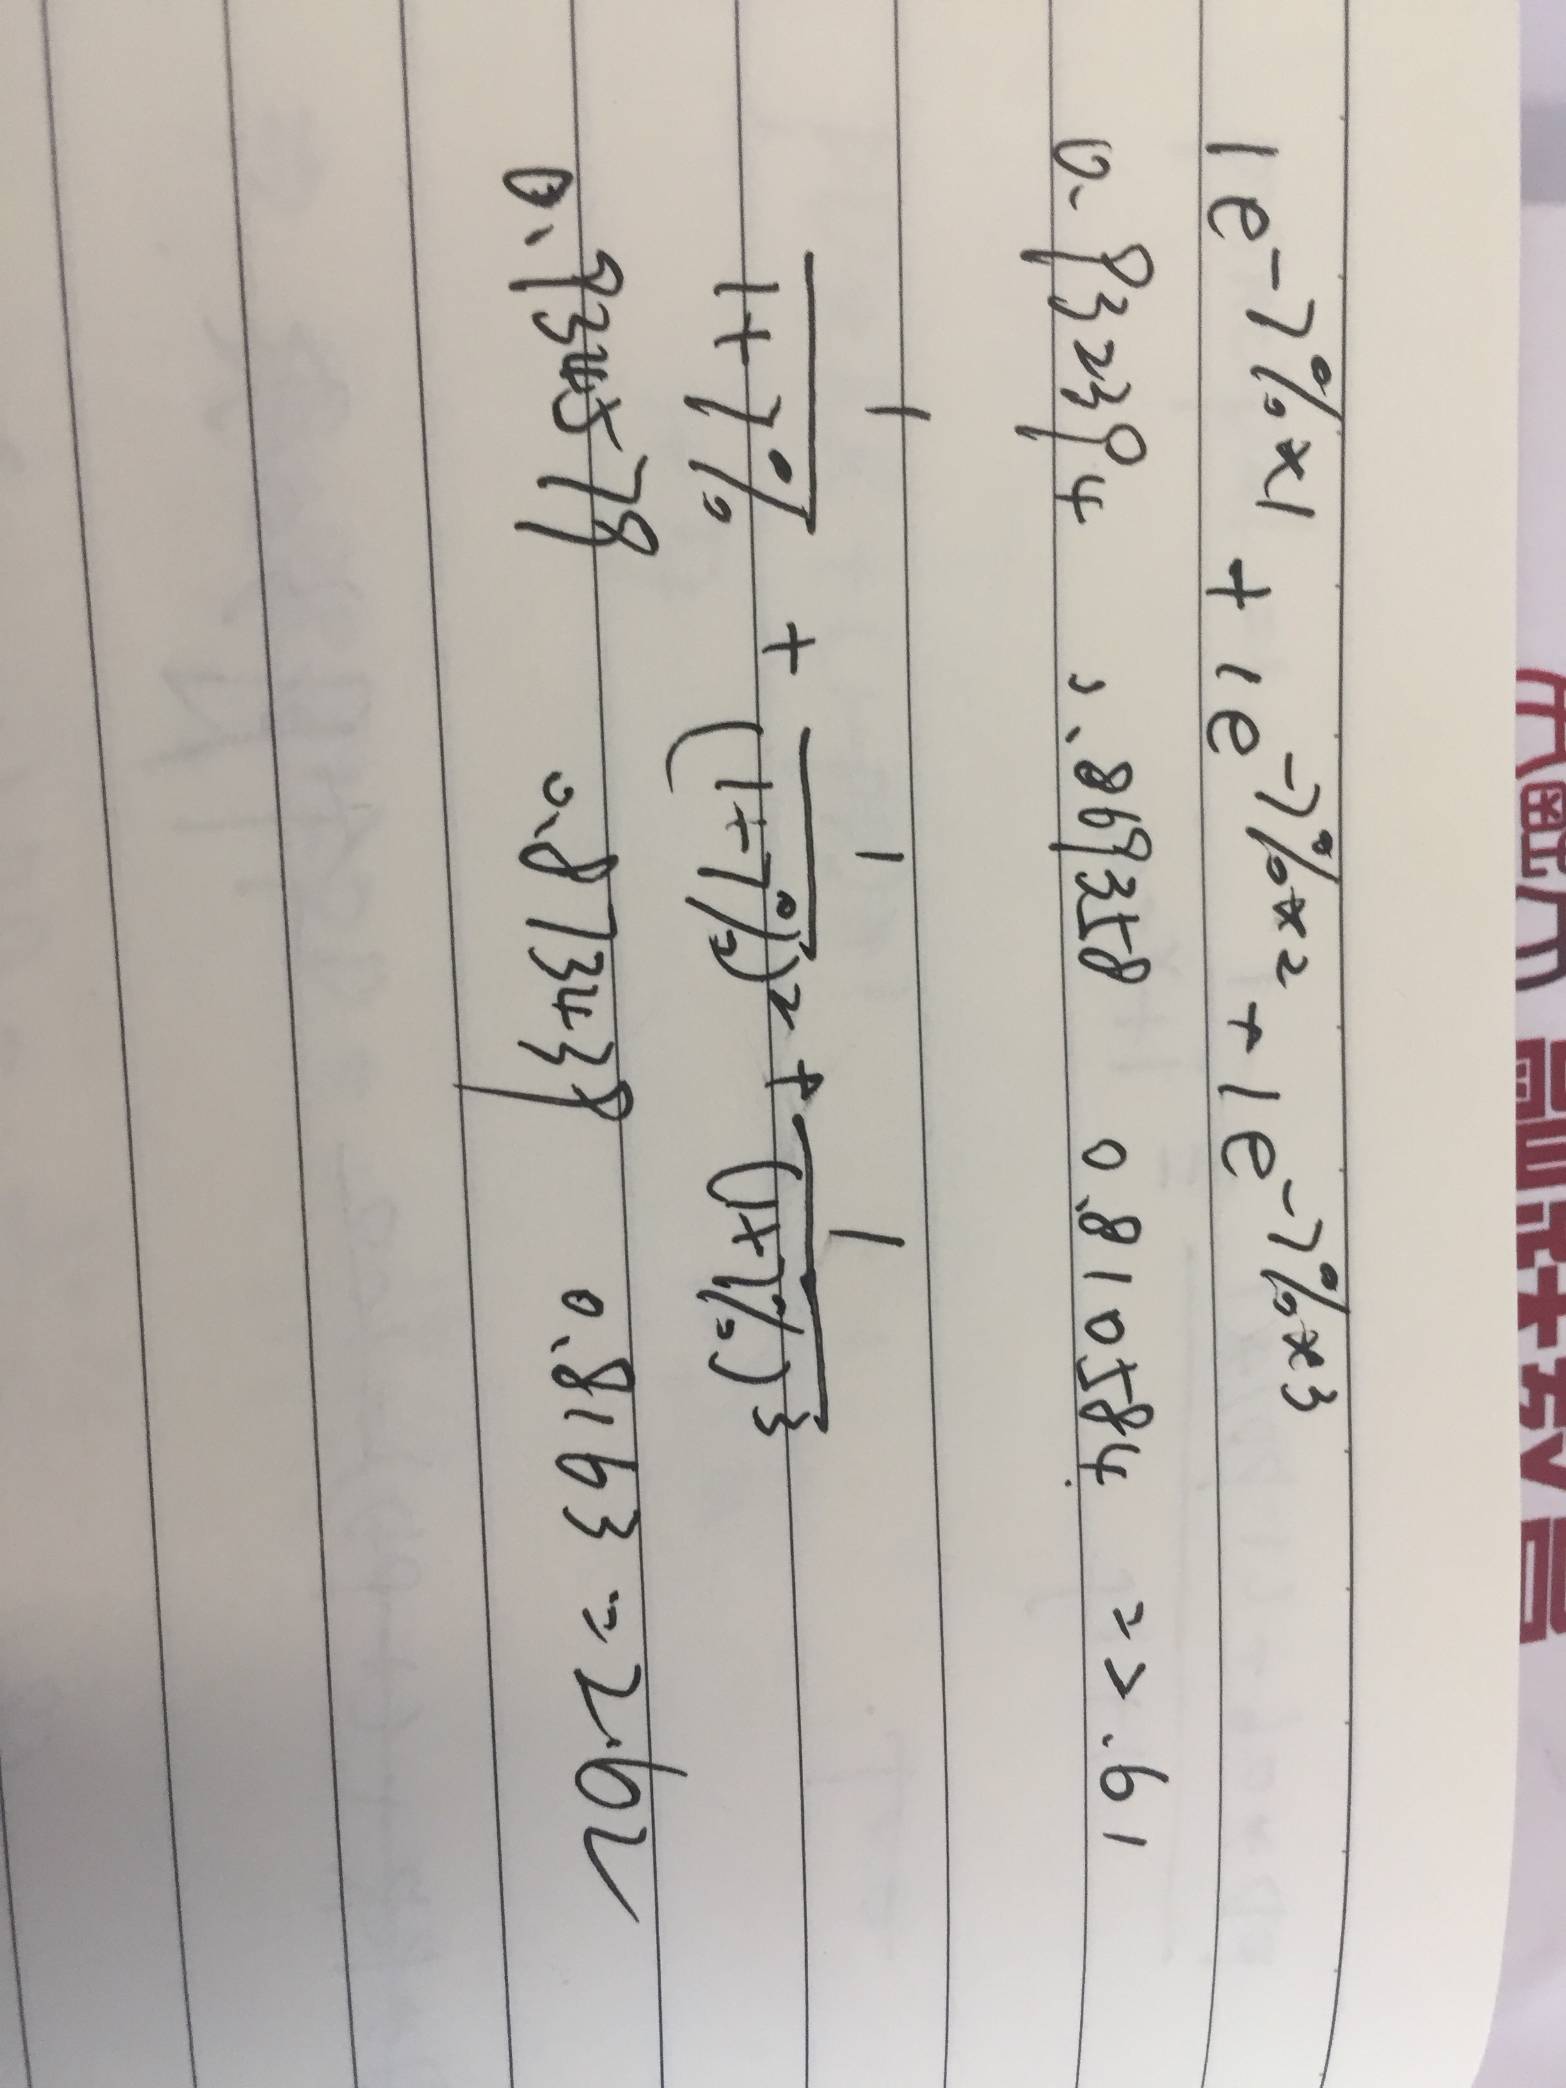 1e^-7%×1 + 1e^-7%×2 + 1e^-7%×3
0.932394 0.869358 0.810584 = 2.61
1/(1+7%) + 1/(1+7%)^2 + 1/(1+7%)^3
0.934579 0.873438 0.8163 = 2.62